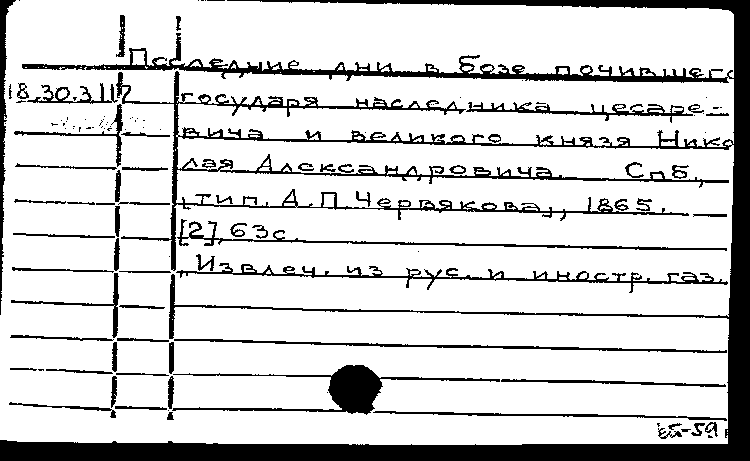 Последние дни в бозе почившего
18.30.3.117 государя наследника цесаре-
вича и великого князя Нико
лая Александровича. Спб.,
"тип. А.П.Червякова", 1865.
[2], 63с.
"Извлеч. из рус. и иностр. газ.